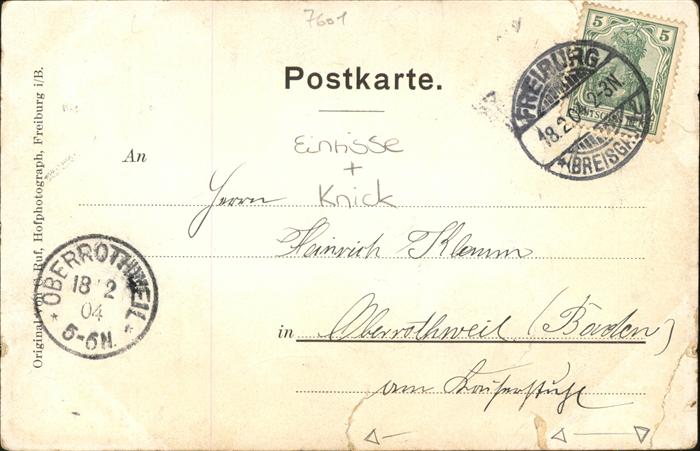 7601
5 5
FREIBURG
18.2.0 2-3N
*(BREISGAU)
Postkarte.
Einrisse
+
Knick
An
Herrn
Heinrich Klamm
in Oberrothweil (Baden)
am Kaiserstuhl
OBERROTHWEIL
18 2
04
5-6N.
Original von C. Ruf, Hofphotograph, Freiburg i/B.